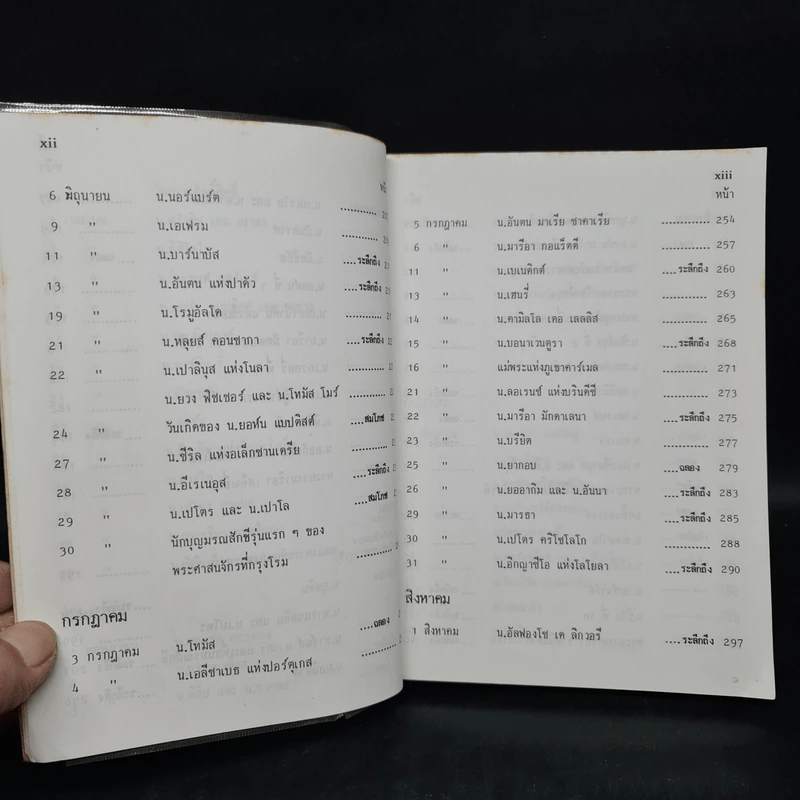 xii
หน้า
6 มิถุนายน น.นอร์แบร์ต ............
9 " น.เอเฟรม ............
11 " น.บาร์นาบัส ....ระลึกถึง
13 " น.อันตน แห่งปาดัว ....ระลึกถึง
19 " น.โรมูอัลโด ............
21 " น.หลุยส์ คอนซากา ....ระลึกถึง
22 " น.เปาลินุส แห่งโนลา ............
น.ยวง ฟิชเชอร์ และ น.โทมัส โมร์ ............
24 " วันเกิดของ น.ยอห์น แบปติสต์ ....สมโภช
27 " น.ซีริล แห่งอเล็กซานเดรีย ............
28 " น.อีเรเนอุส ....ระลึกถึง
29 " น.เปโตร และ น.เปาโล ....สมโภช
30 " นักบุญมรณสักขีรุ่นแรก ๆ ของ
พระศาสนจักรที่กรุงโรม ............
กรกฎาคม
3 กรกฎาคม น.โทมัส ....ฉลอง
4 " น.เอลีซาเบธ แห่งปอร์ตุเกส ............
xiii
หน้า
5 กรกฎาคม น.อันตน มาเรีย ซาคาเรีย ............ 254
6 " น.มารีอา กอแร็ตตี ............ 257
11 " น.เบเนดิกต์ ....ระลึกถึง 260
13 " น.เฮนรี่ ............ 263
14 " น.คามิลโล เดอ เลลลิส ............ 265
15 " น.บอนาเวนตูรา ....ระลึกถึง 268
16 " แม่พระแห่งภูเขาคาร์เมล ............ 271
21 " น.ลอเรนซ์ แห่งบรินดีซี ............ 273
22 " น.มารีอา มักดาเลนา ....ระลึกถึง 275
23 " น.บรียิต ............ 277
25 " น.ยากอบ ....ฉลอง 279
26 " น.ยออากิม และ น.อันนา ....ระลึกถึง 283
29 " น.มารธา ....ระลึกถึง 285
30 " น.เปโตร คริโซโลโก ............ 288
31 " น.อิกญาซีโอ แห่งโลโยลา ....ระลึกถึง 290
สิงหาคม
1 สิงหาคม น.อัลฟองโซ เด ลิกวอรี ....ระลึกถึง 297